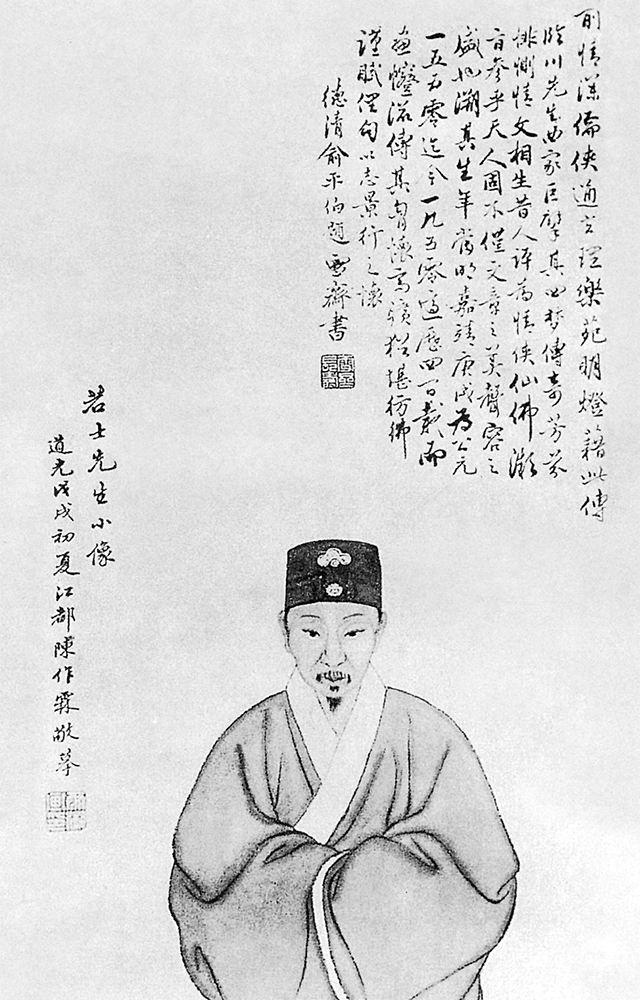 前情深儒俠通玄理樂苑明燈藉此傳
臨川先生曲家巨擘其四夢傳奇芳芬
悱惻情文相生昔人評為情俠仙佛
旨參乎天人固不僅文章之美聲容之
盛也溯其生年當明嘉靖庚戌為公元
一五五零迄今一九五零適歷四百載而
傳其胷懷高曠猶堪彷彿
謹賦俚句以志景行之懷
德清俞平伯題 齋書
若士先生小像
道光戊戌初夏江都陳作霖敬摹